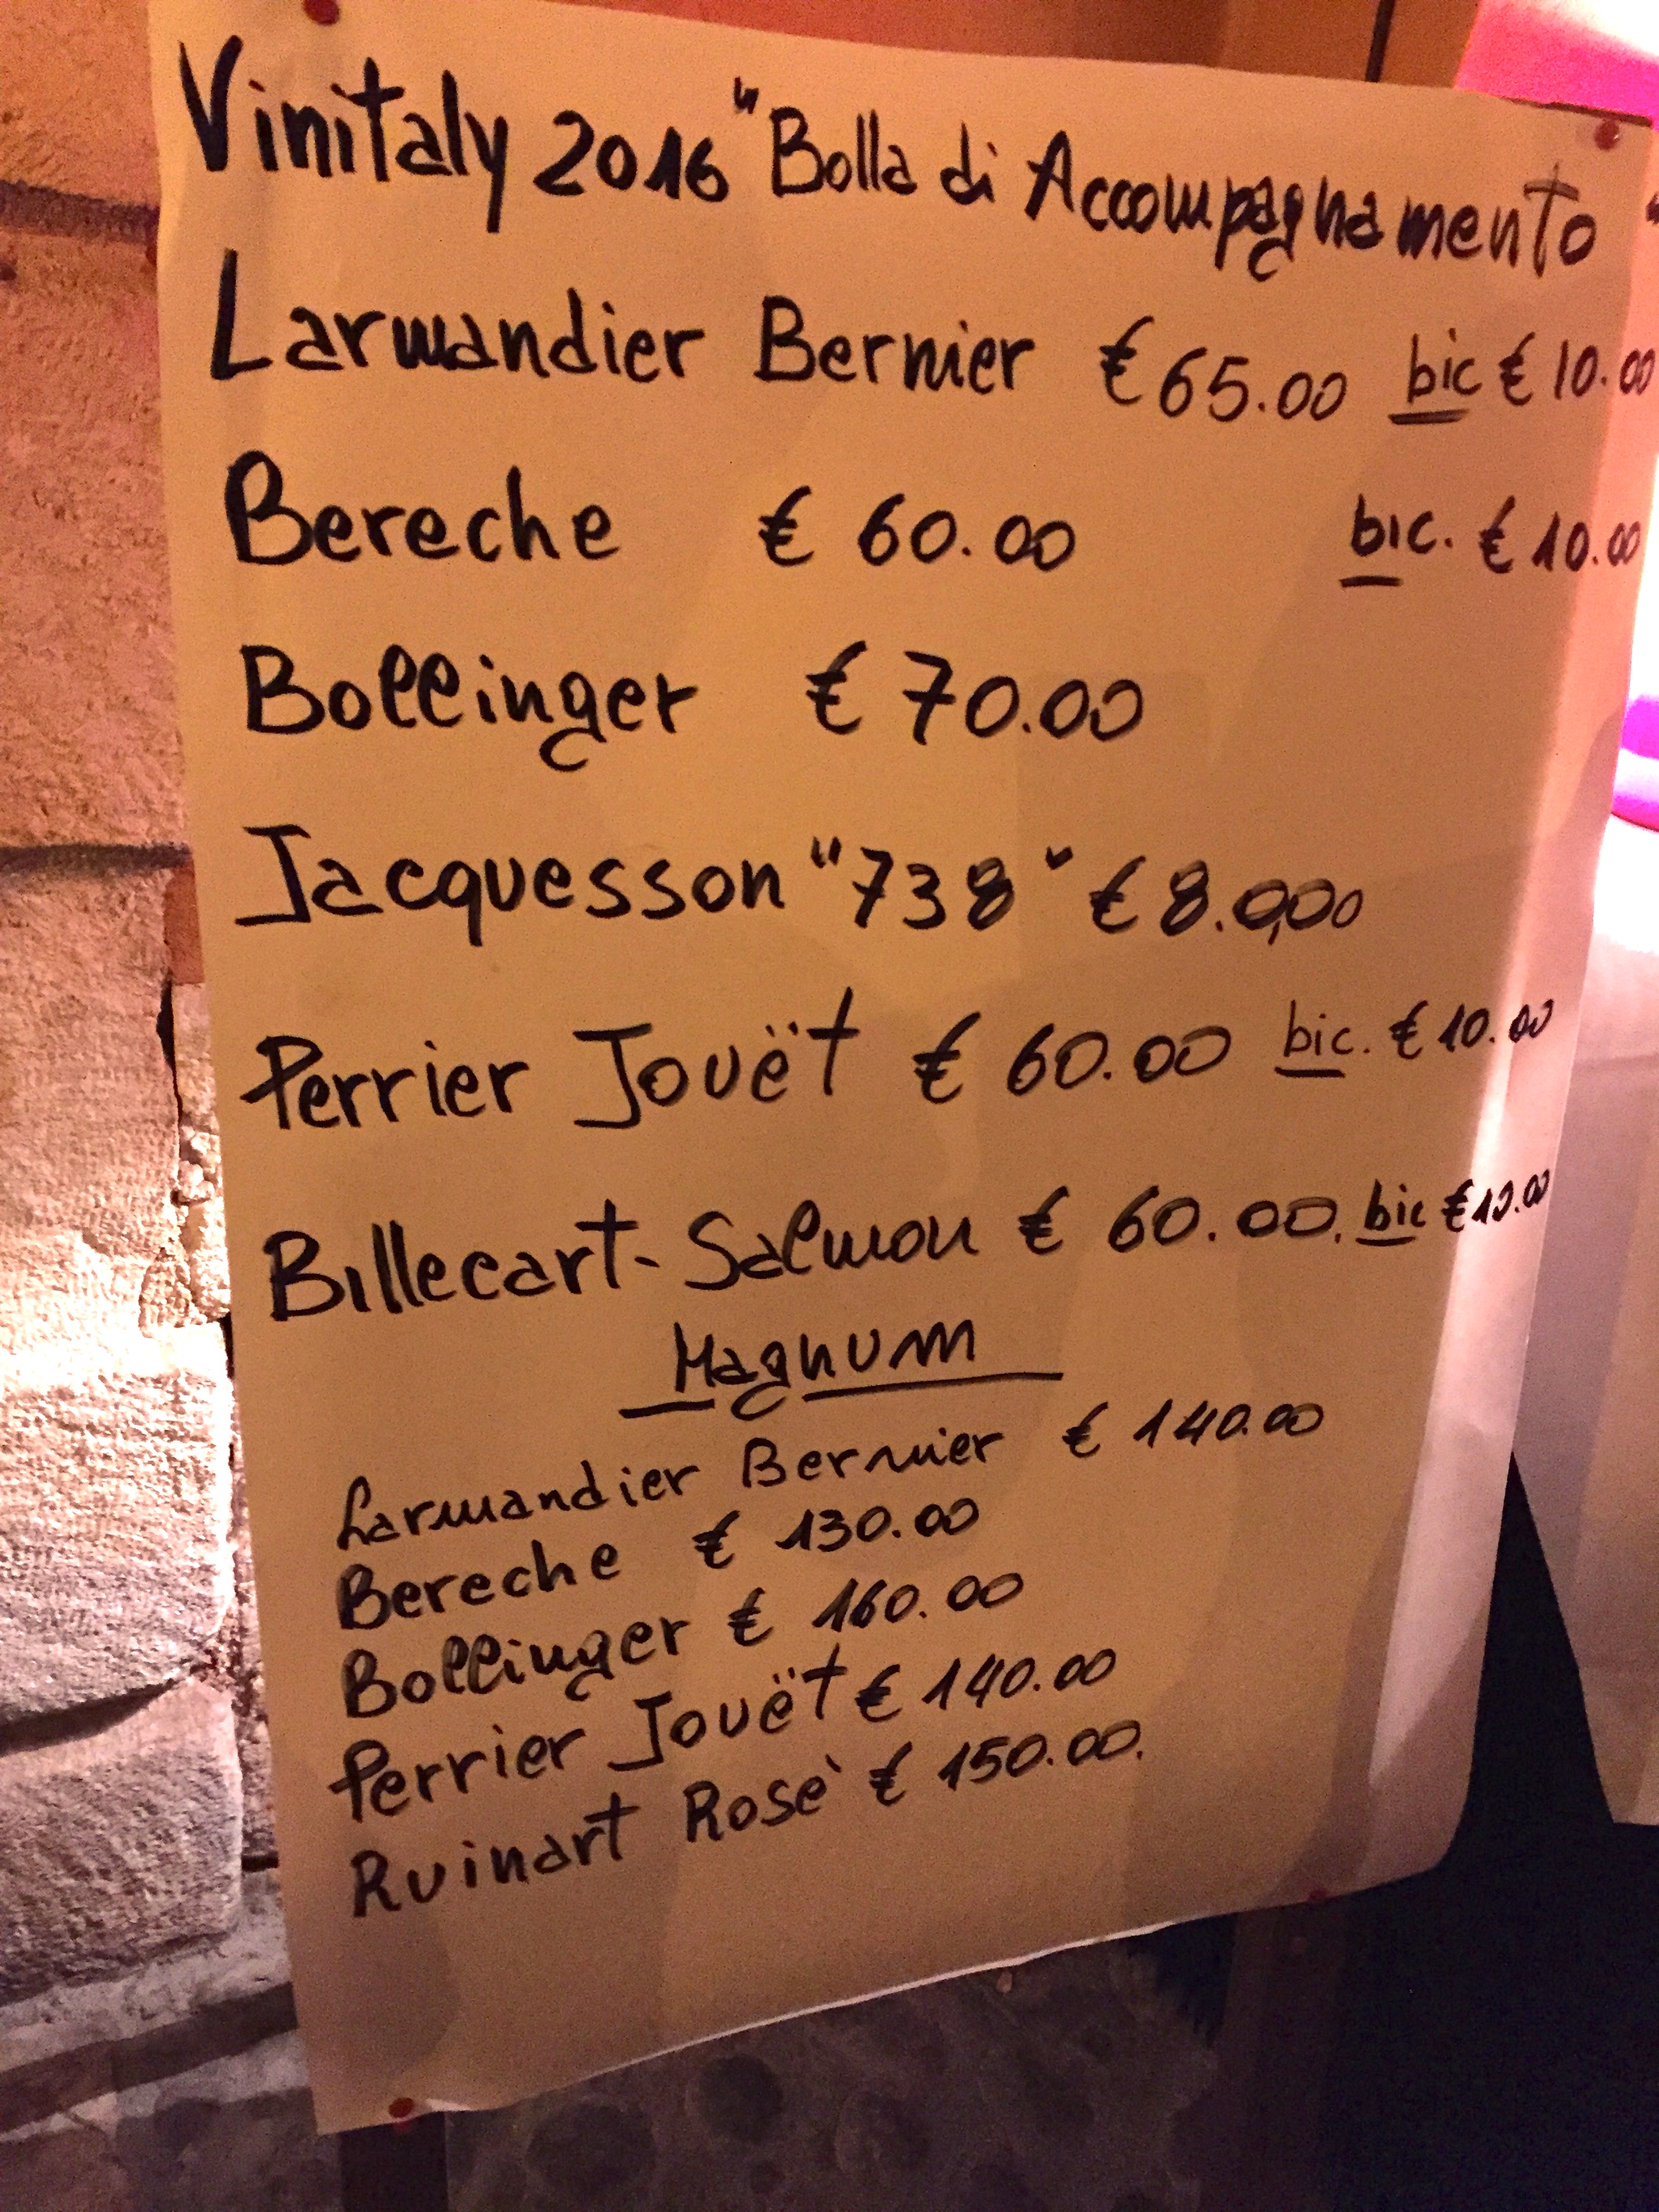 Vinitaly 2016 "Bolla di Accompagnamento"
Larmandier Bernier € 65.00 bic € 10.00
Bereche € 60.00 bic. € 10.00
Bollinger € 70.00
Jacquesson "738" € 8.0,00
Perrier Jouët € 60.00 bic. € 10.00
Billecart-Salmon € 60.00. bic € 10.00
Magnum
Larmandier Bernier € 140.00
Bereche € 130.00
Bollinger € 160.00
Perrier Jouët € 140.00
Ruinart Rosè € 150.00.